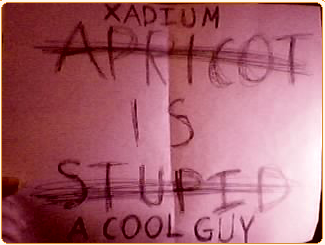 XADIUM
APRICOT
IS
STUPID
A COOL GUY